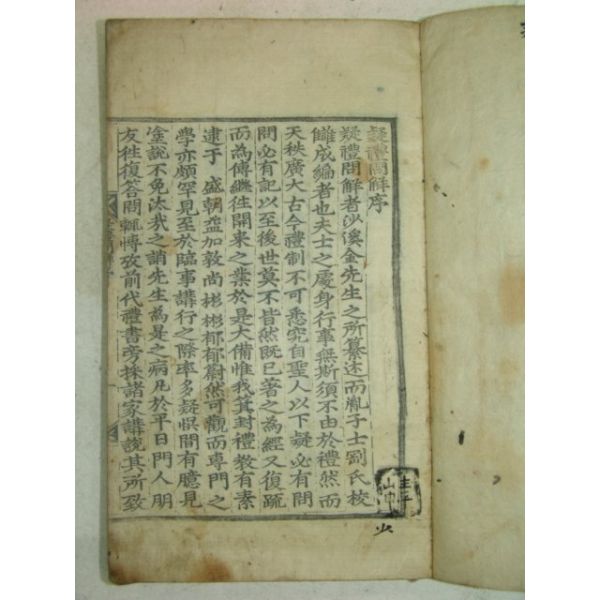 疑禮問解序
疑禮問解者沙溪金先生之所纂述而胤子士剛氏校
讎成編者也夫士之處身行事無斯須不由於禮然而
天秩廣大古今禮制不可悉究自聖人以下疑必有問
問必有記以至後世莫不皆然既已著之為經又復疏
而為傳繼往開來之業於是大備惟我箕封禮教有素
逮于 盛朝益加敦尚彬彬郁郁蔚然可觀而專門之
學亦頗罕見至於臨事講行之際率多疑惧間有臆見
僉說不免汰我之誚先生為是之病凡於平日門人朋
友往復答問輒博攷前代禮書旁採諸家講說其所致